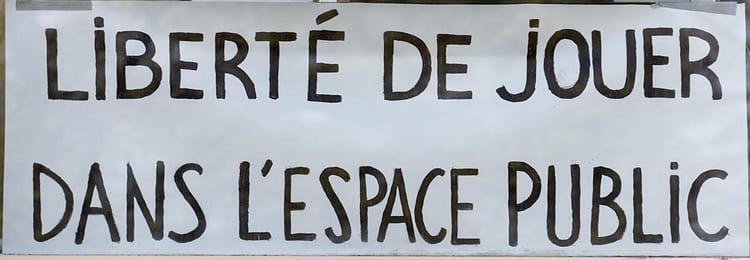 LiBERTÉ DE JOUER
DANS L'ESPACE PUBLiC